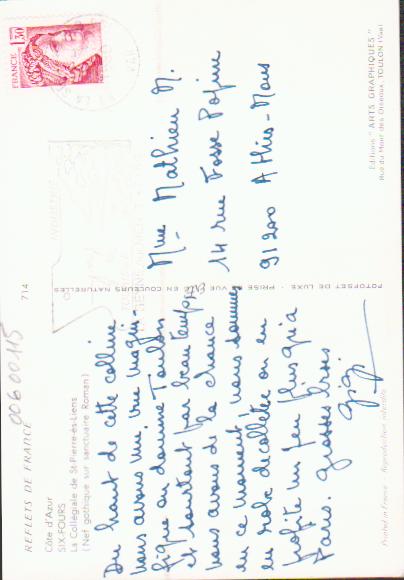 REFLETS DE FRANCE
714
00600115
Côte d'Azur
SIX-FOURS
La Collégiale de St-Pierre-ès-Liens
(Nef gothique sur sanctuaire Roman)
Du haut de cette colline
nous avons une vue magni-
fique on domine Toulon
et surtout par beau temps
nous avons de la chance
en ce moment nous sommes
en robe decolletée on en
profite un peu plus qu'à
Paris. grosses bises
Gigi
FRANCE
1,30
Mme Mathieu N.
14 rue Fosse
91200 Athis-Mons
FOTOFSET DE LUXE - PRISE DE VUE EN COULEURS NATURELLES
Editions "ARTS GRAPHIQUES"
Rue du Mont des Oiseaux, TOULON (Var)
Printed in France
Reproduction interdite